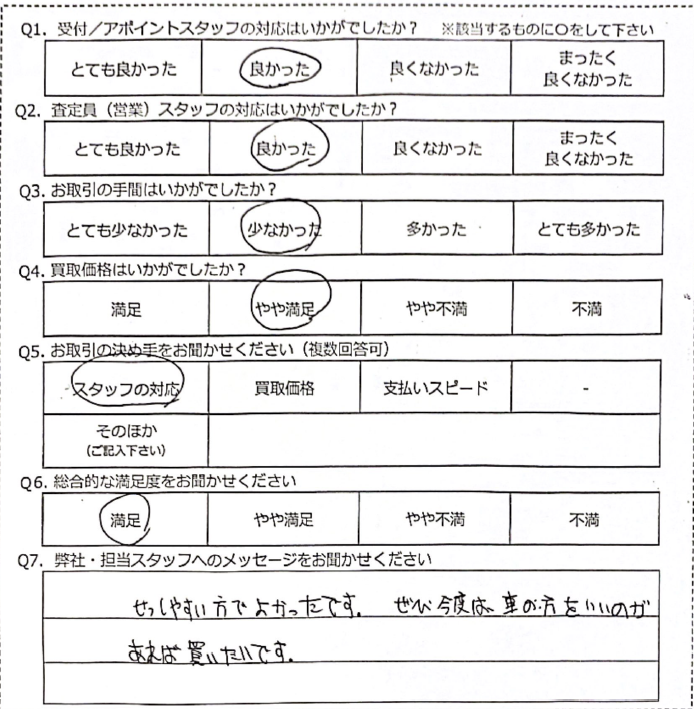 Q1. 受付／アポイントスタッフの対応はいかがでしたか？ ※該当するものに○をして下さい
とても良かった 良かった 良くなかった まったく
良くなかった
Q2. 査定員（営業）スタッフの対応はいかがでしたか？
とても良かった 良かった 良くなかった まったく
良くなかった
Q3. お取引の手間はいかがでしたか？
とても少なかった 少なかった 多かった とても多かった
Q4. 買取価格はいかがでしたか？
満足 やや満足 やや不満 不満
Q5. お取引の決め手をお聞かせください（複数回答可）
スタッフの対応 買取価格 支払いスピード -
そのほか
（ご記入下さい）
Q6. 総合的な満足度をお聞かせください
満足 やや満足 やや不満 不満
Q7. 弊社・担当スタッフへのメッセージをお聞かせください
せっしやすい方でよかったです。 ぜひ今度は、車の方をいいのが
あれば買いたいです。